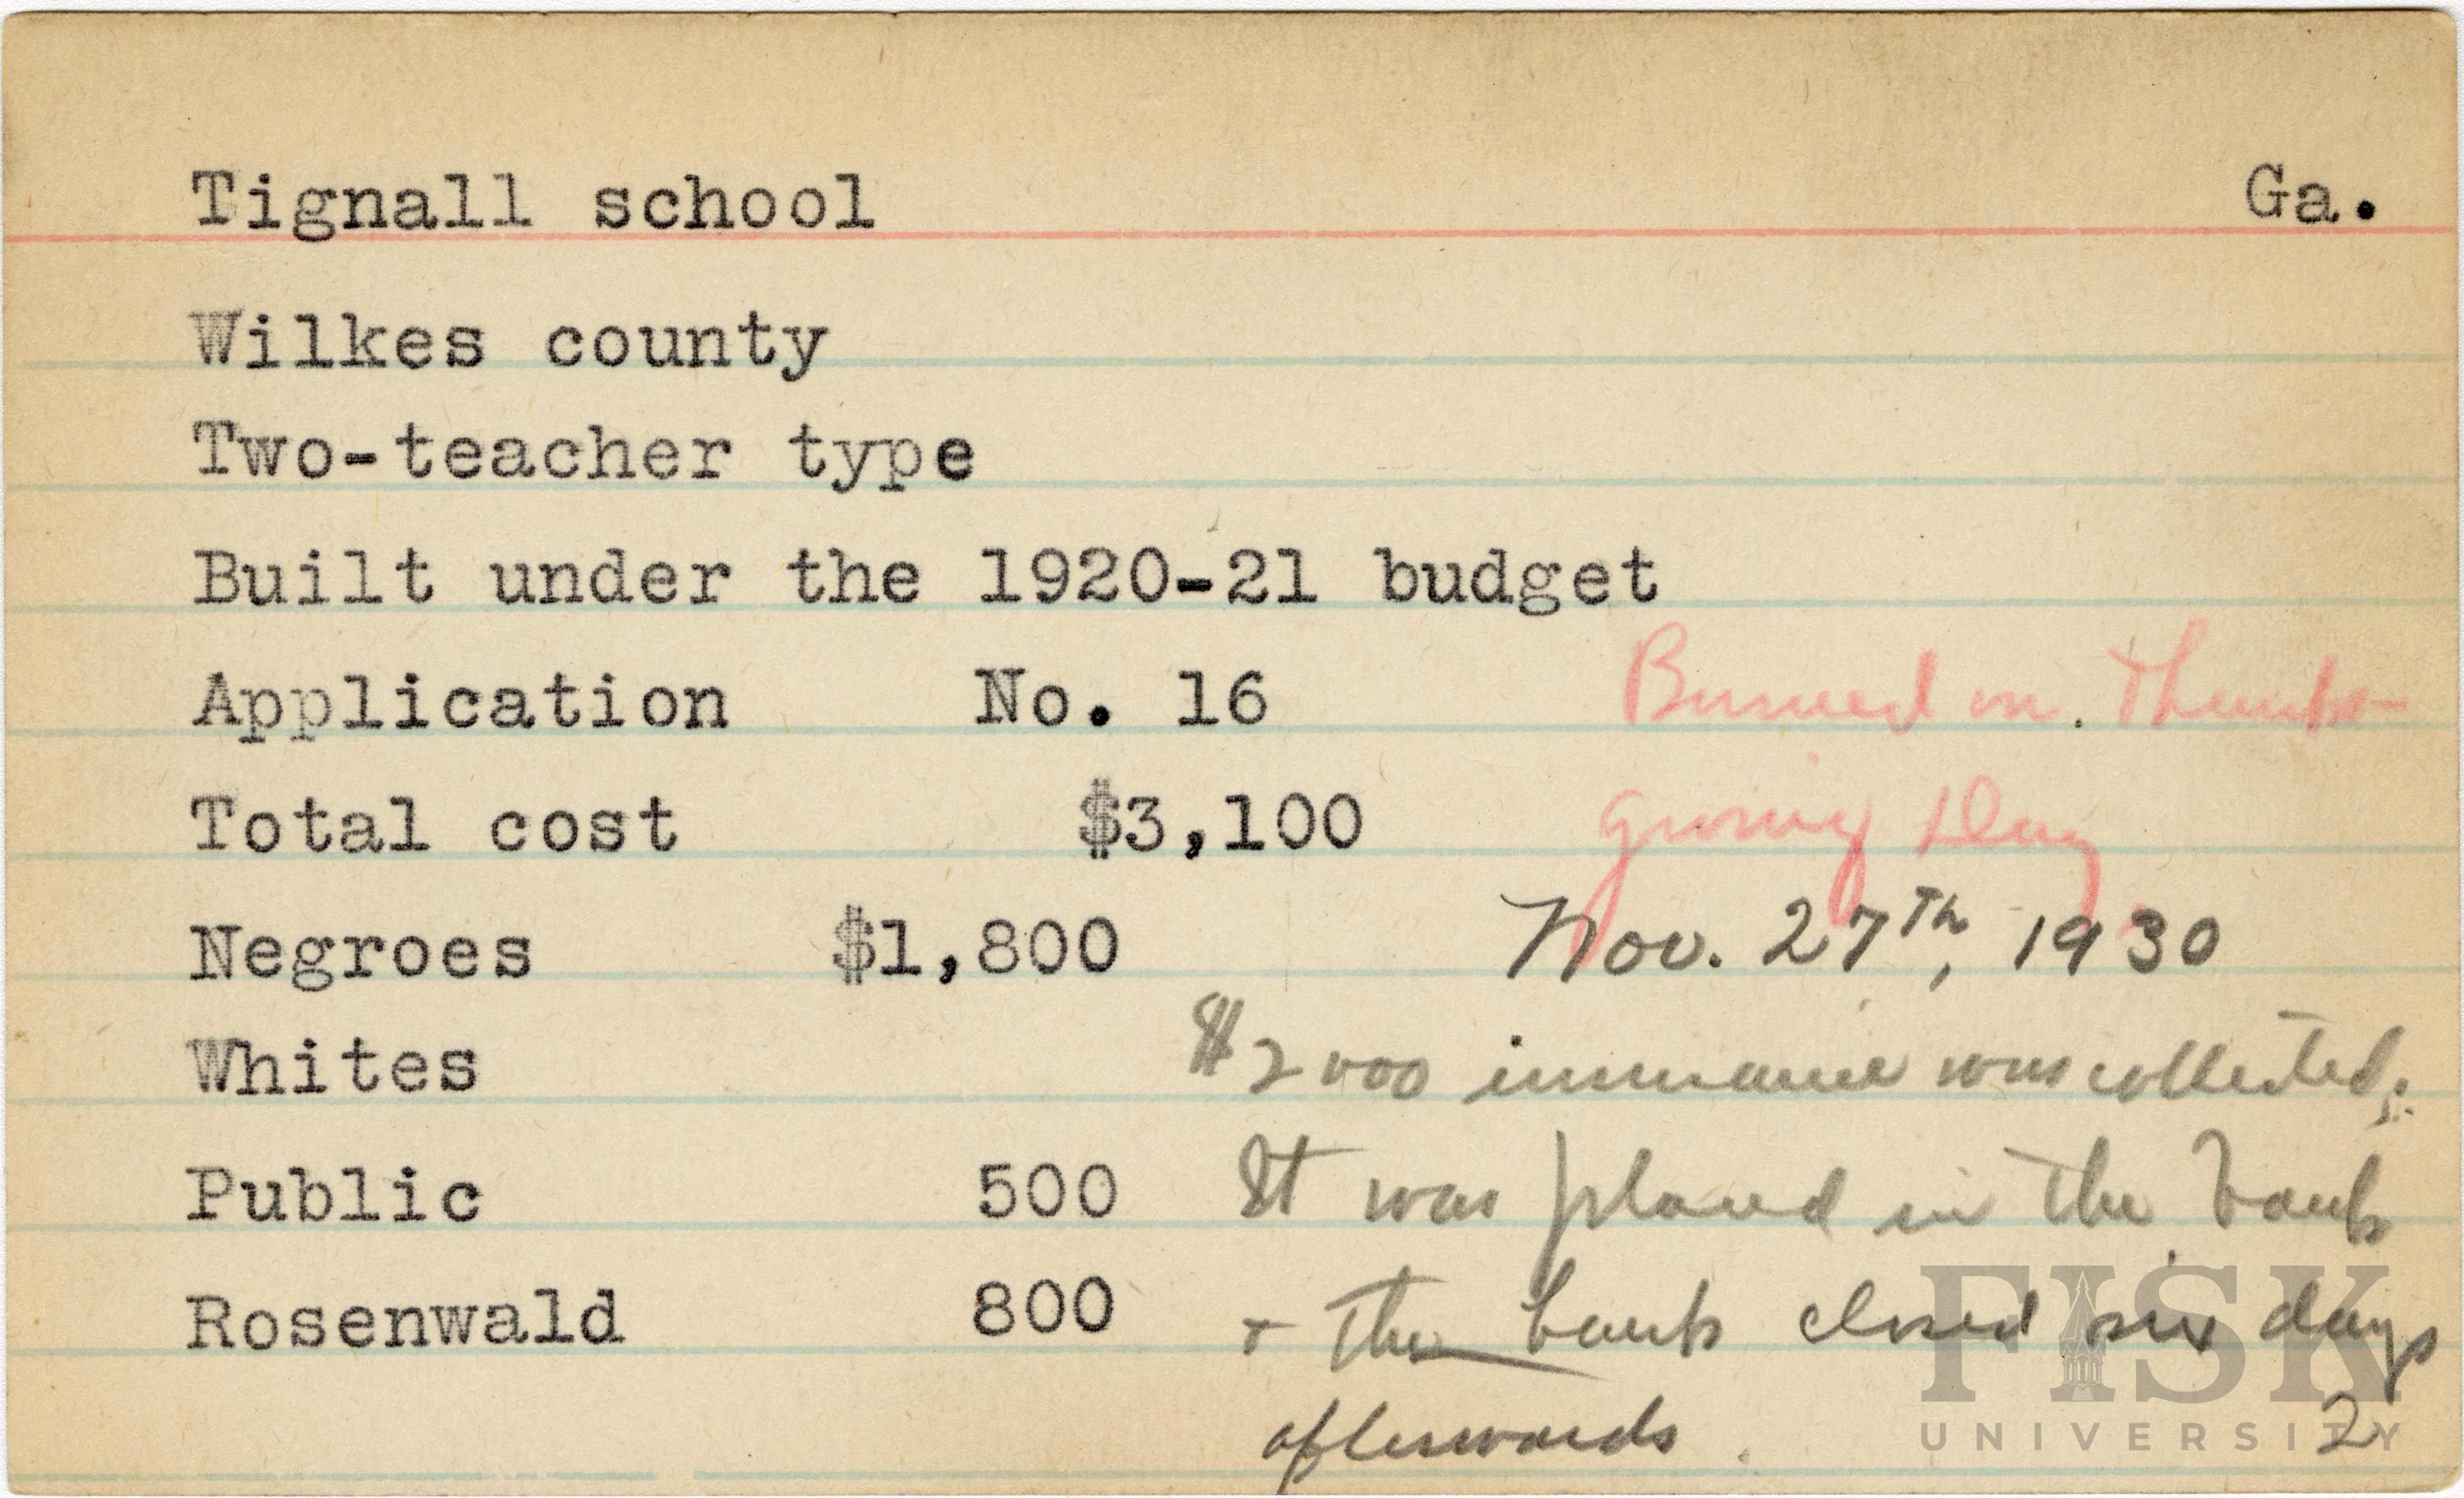 Tignall school Ga.
Wilkes county
Two-teacher type
Built under the 1920-21 budget
Application No. 16 Burned on. Thanks-
Total cost $3,100 giving Day
Negroes $1,800 Nov. 27th, 1930
Whites $2000 insurance was collected;
Public 500 It was placed in the bank
Rosenwald 800 + the bank closed six days
afterwards. 2
FISK
UNIVERSITY